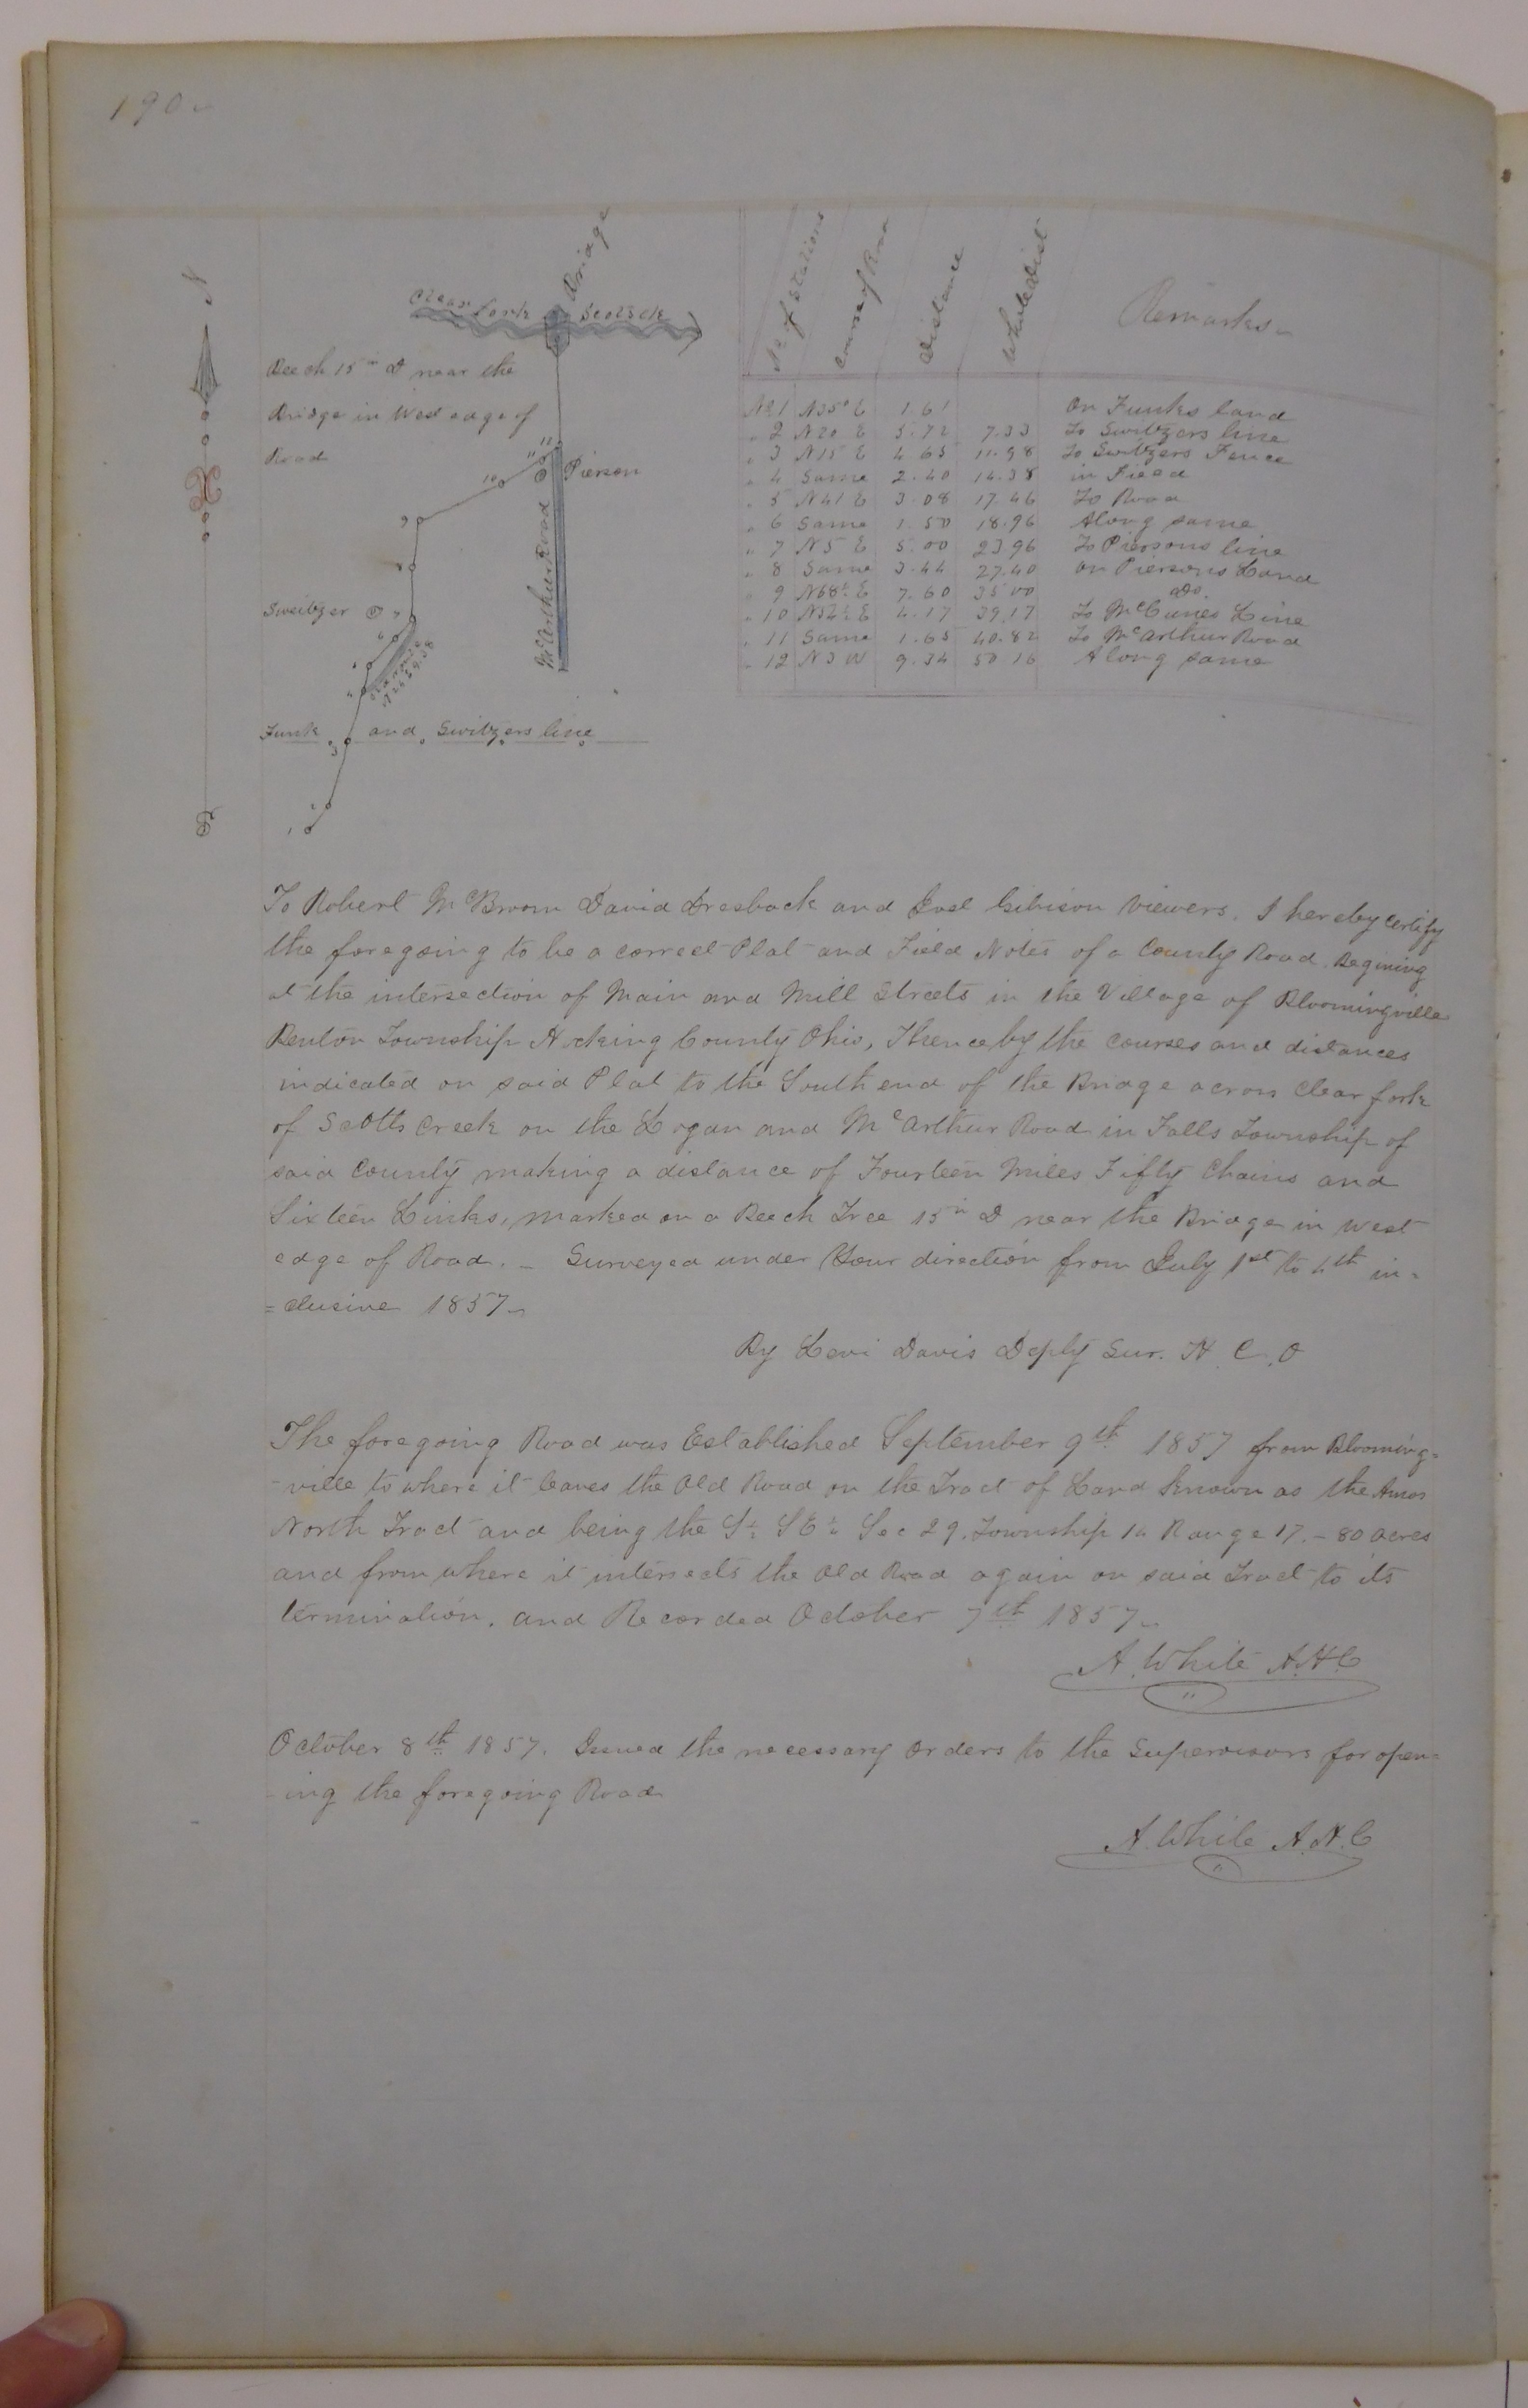 190
N
Bridge
Clear fork Scotsck
Beech 15 in D near the
Bridge in West edge of
Road
Pierson
McArthur Road
11
11
10
9
8
Sweitzer 7
6
5
4
Funk 3 and Switzers line
2
1
S
No of Stations Course of Road Distance Whole Dist Remarks
No 1 N35° E 1.61 On Funks land
" 2 N20 E 5.72 7.33 To Switzers line
" 3 N15 E 4.65 11.98 To Switzers Fence
" 4 Same 2.40 14.38 in Field
" 5 N41 E 3.08 17.46 To Road
" 6 Same 1.50 18.96 Along same
" 7 N5 E 5.00 23.96 To Piersons line
" 8 Same 3.44 27.40 on Piersons Land
" 9 N68½ E 7.60 35.00 do.
" 10 N52½ E 4.17 39.17 To McCunes Line
" 11 Same 1.65 40.82 To McArthur Road
" 12 N3 W 9.34 50.16 Along same
To Robert McBroom David Dresback and Joel Gibison Viewers. I hereby certify
the foregoing to be a correct Plat and Field Notes of a County Road Begining
at the intersection of Main and Mill Streets in the Village of Bloomingville
Benton Township Hocking County Ohio, Thence by the courses and distances
indicated on said Plat to the South end of the Bridge across Clear fork
of Scotts Creek on the Logan and McArthur Road in Falls Township of
said County making a distance of Fourteen Miles Fifty Chains and
Sixteen Links, marked on a Beech Tree 15 in D near the Bridge in West
edge of Road. – Surveyed under Your direction from July 1st to 4th in-
=clusive 1857
By Levi Davis Depty Sur. H. C. O
The foregoing Road was Established September 9th 1857 from Blooming=
-ville to where it leaves the Old Road on the Tract of Land known as the Amos
North Tract and being the S½ SE¼ Sec 29. Township 14 Range 17. – 80 acres
and from where it intersects the Old Road again on said Tract to its
termination. and Recorded October 7th 1857
A. White A.H.C
October 8th 1857. Issued the necessary Orders to the Supervisors for open=
-ing the foregoing Road
A. White A.H.C